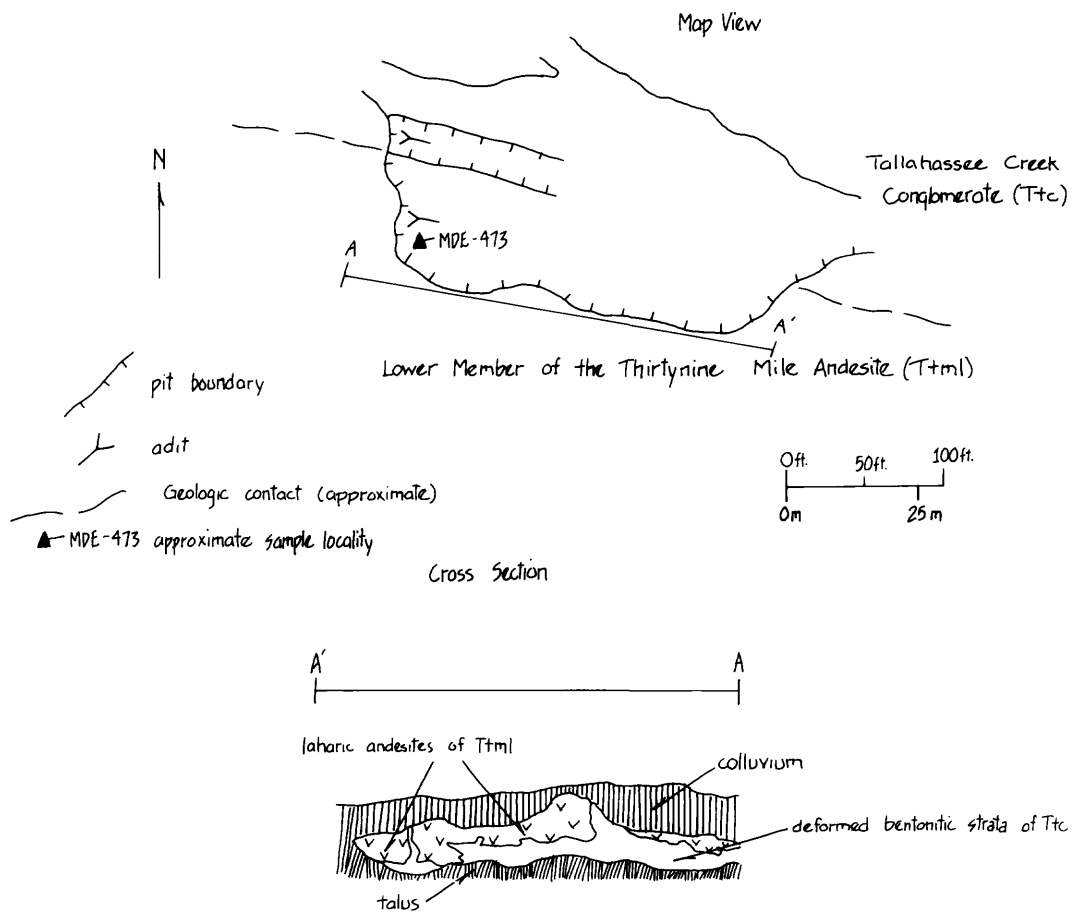 Map View
N
Tallahassee Creek
Conglomerate (Ttc)
MDE-473
A
A'
Lower Member of the Thirtynine Mile Andesite (Ttml)
pit boundary
adit
Geologic contact (approximate)
MDE-473 approximate sample locality
0ft. 50ft. 100ft.
0m 25m
Cross Section
A' A
laharic andesites of Ttml
colluvium
deformed bentonitic strata of Ttc
talus